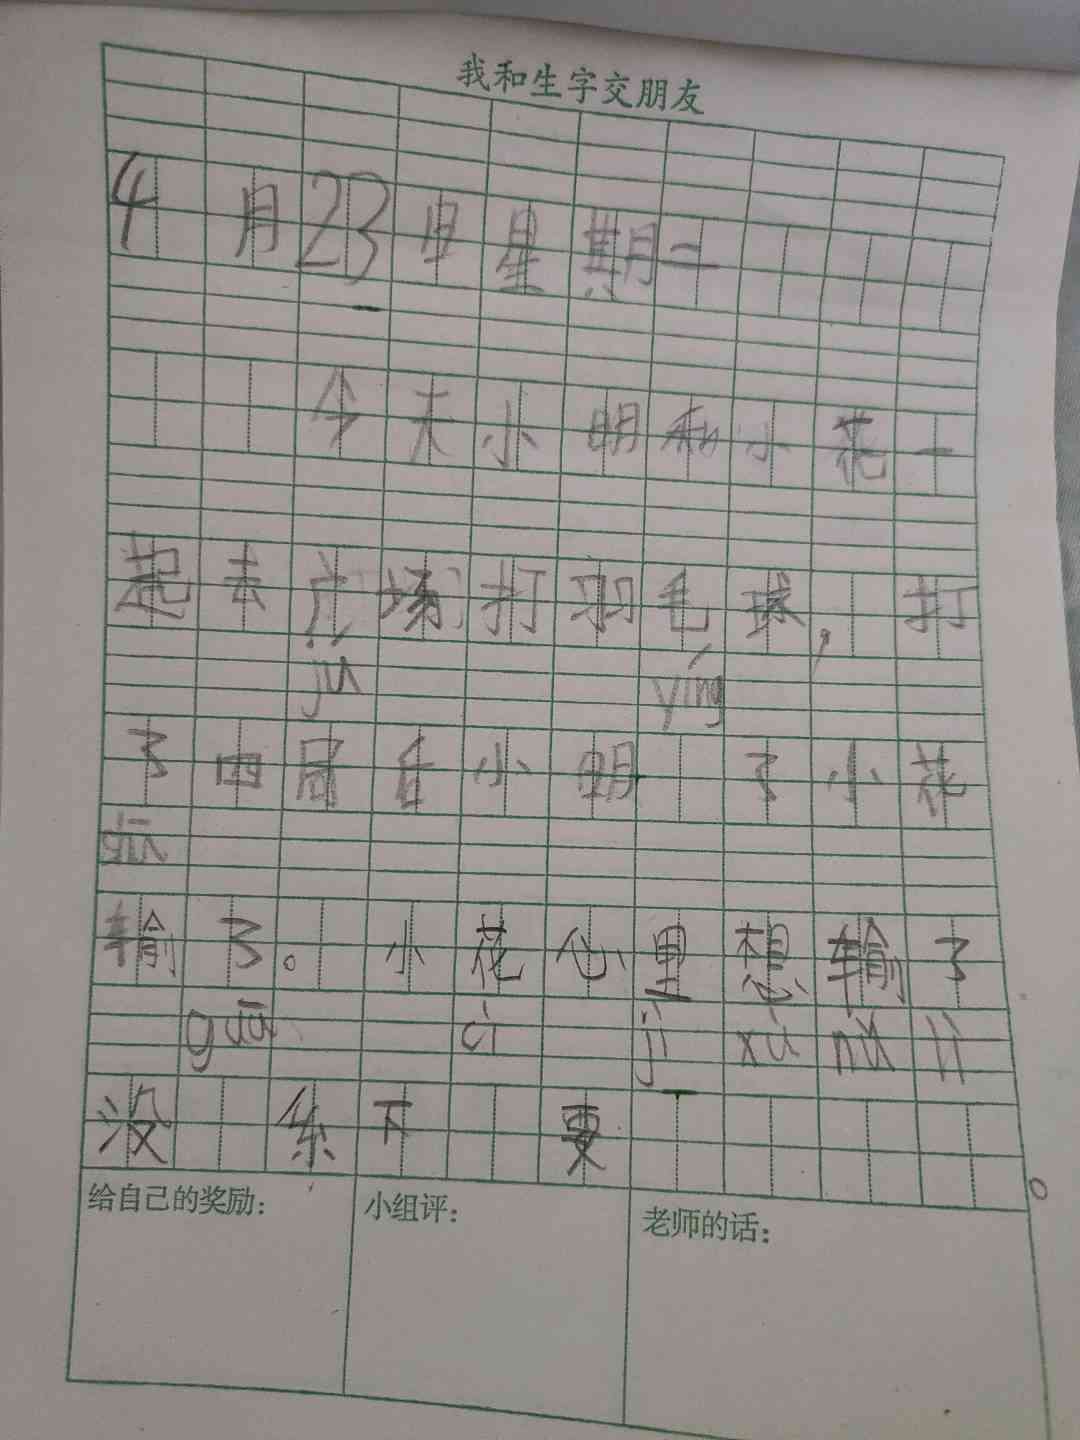 我和生字交朋友
4月23日星期二
今天小明和小花一
起去广场打羽毛球,打
jú yíng
了两局后小明 了小花
输了。小花心里想输了
guān cì jì xù nǔ lì
没 系下 要 。
给自己的奖励: 小组评: 老师的话: